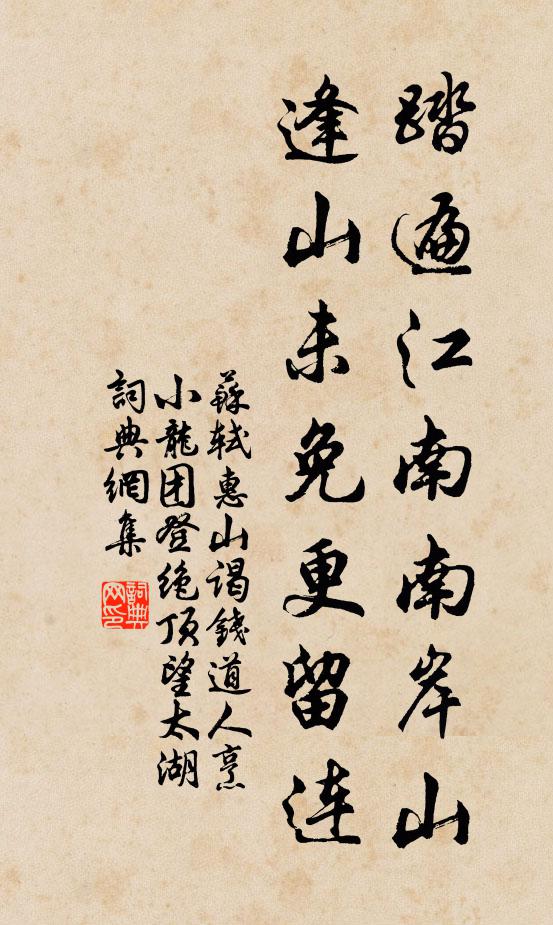 踏遍江南南岸山
逢山未免更留連
蘇軾惠山謁錢道人烹
小龍团登绝頂望太湖
詞典網集
詞典网印